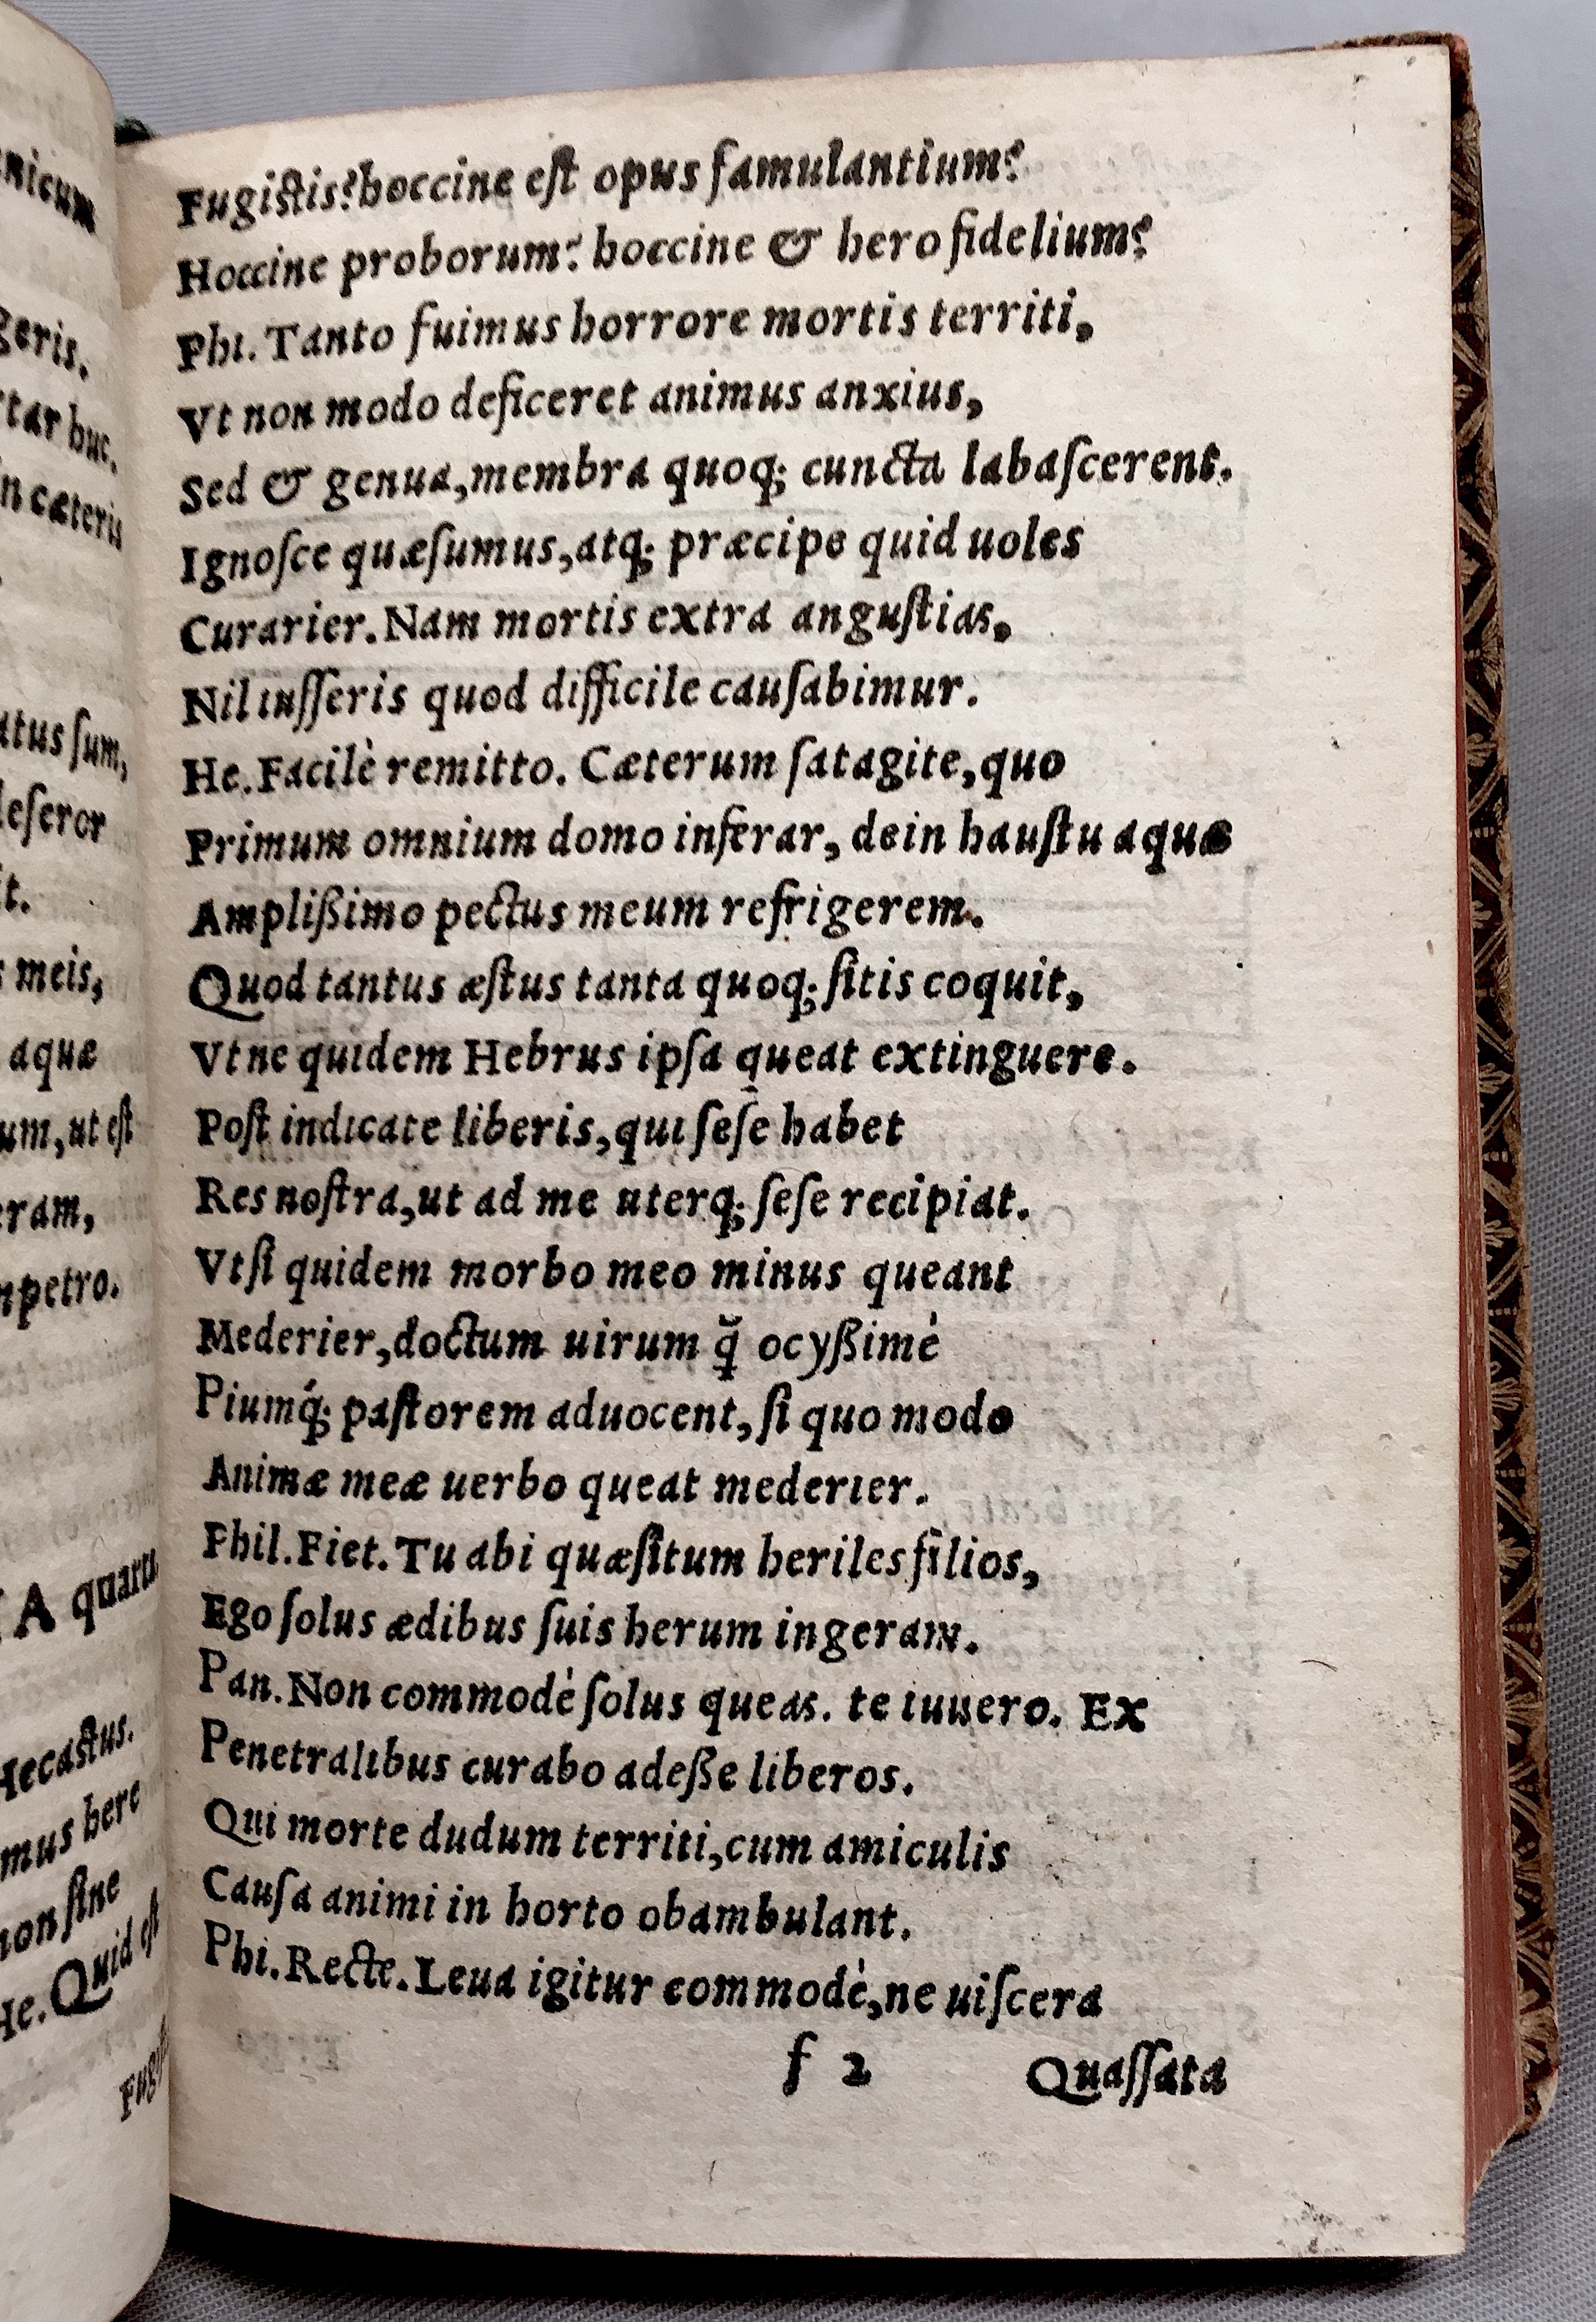 nicum
geris.
tar huc.
n cæteris
atus ſum,
deſeror
t.
meis,
aquæ
um, ut eſt
ram,
petro.
A quarta
Hecaſtus.
mus here
non ſine
He. Quid eſt
Fugiſtis? hoccine eſt opus famulantium?
Hoccine proborum? hoccine & hero fidelium?
Phi. Tanto fuimus horrore mortis territi,
Vt non modo deficeret animus anxius,
Sed & genua, membra quoq; cuncta labaſcerent.
Ignoſce quæſumus, atq; præcipe quid uoles
Curarier. Nam mortis extra anguſtias,
Nil iuſſeris quod difficile cauſabimur.
He. Facilè remitto. Cæterum ſatagite, quo
Primum omnium domo inferar, dein hauſtu aquæ
Amplißimo pectus meum refrigerem.
Quod tantus æſtus tanta quoq; ſitis coquit,
Vt ne quidem Hebrus ipſa queat extinguere.
Poſt indicate liberis, qui ſeſe habet
Res noſtra, ut ad me uterq; ſeſe recipiat.
Vt ſi quidem morbo meo minus queant
Mederier, doctum uirum q̆ ocyßimè
Piumq́; paſtorem aduocent, ſi quo modo
Animæ meæ uerbo queat mederier.
Phil. Fiet. Tu abi quæſitum heriles filios,
Ego ſolus ædibus ſuis herum ingeram.
Pan. Non commodè ſolus queas. te iuuero. Ex
Penetralibus curabo adeße liberos.
Qui morte dudum territi, cum amiculis
Cauſa animi in horto obambulant.
Phi. Recte. Leua igitur commodè, ne uiſcera
f 2 Quaſſata